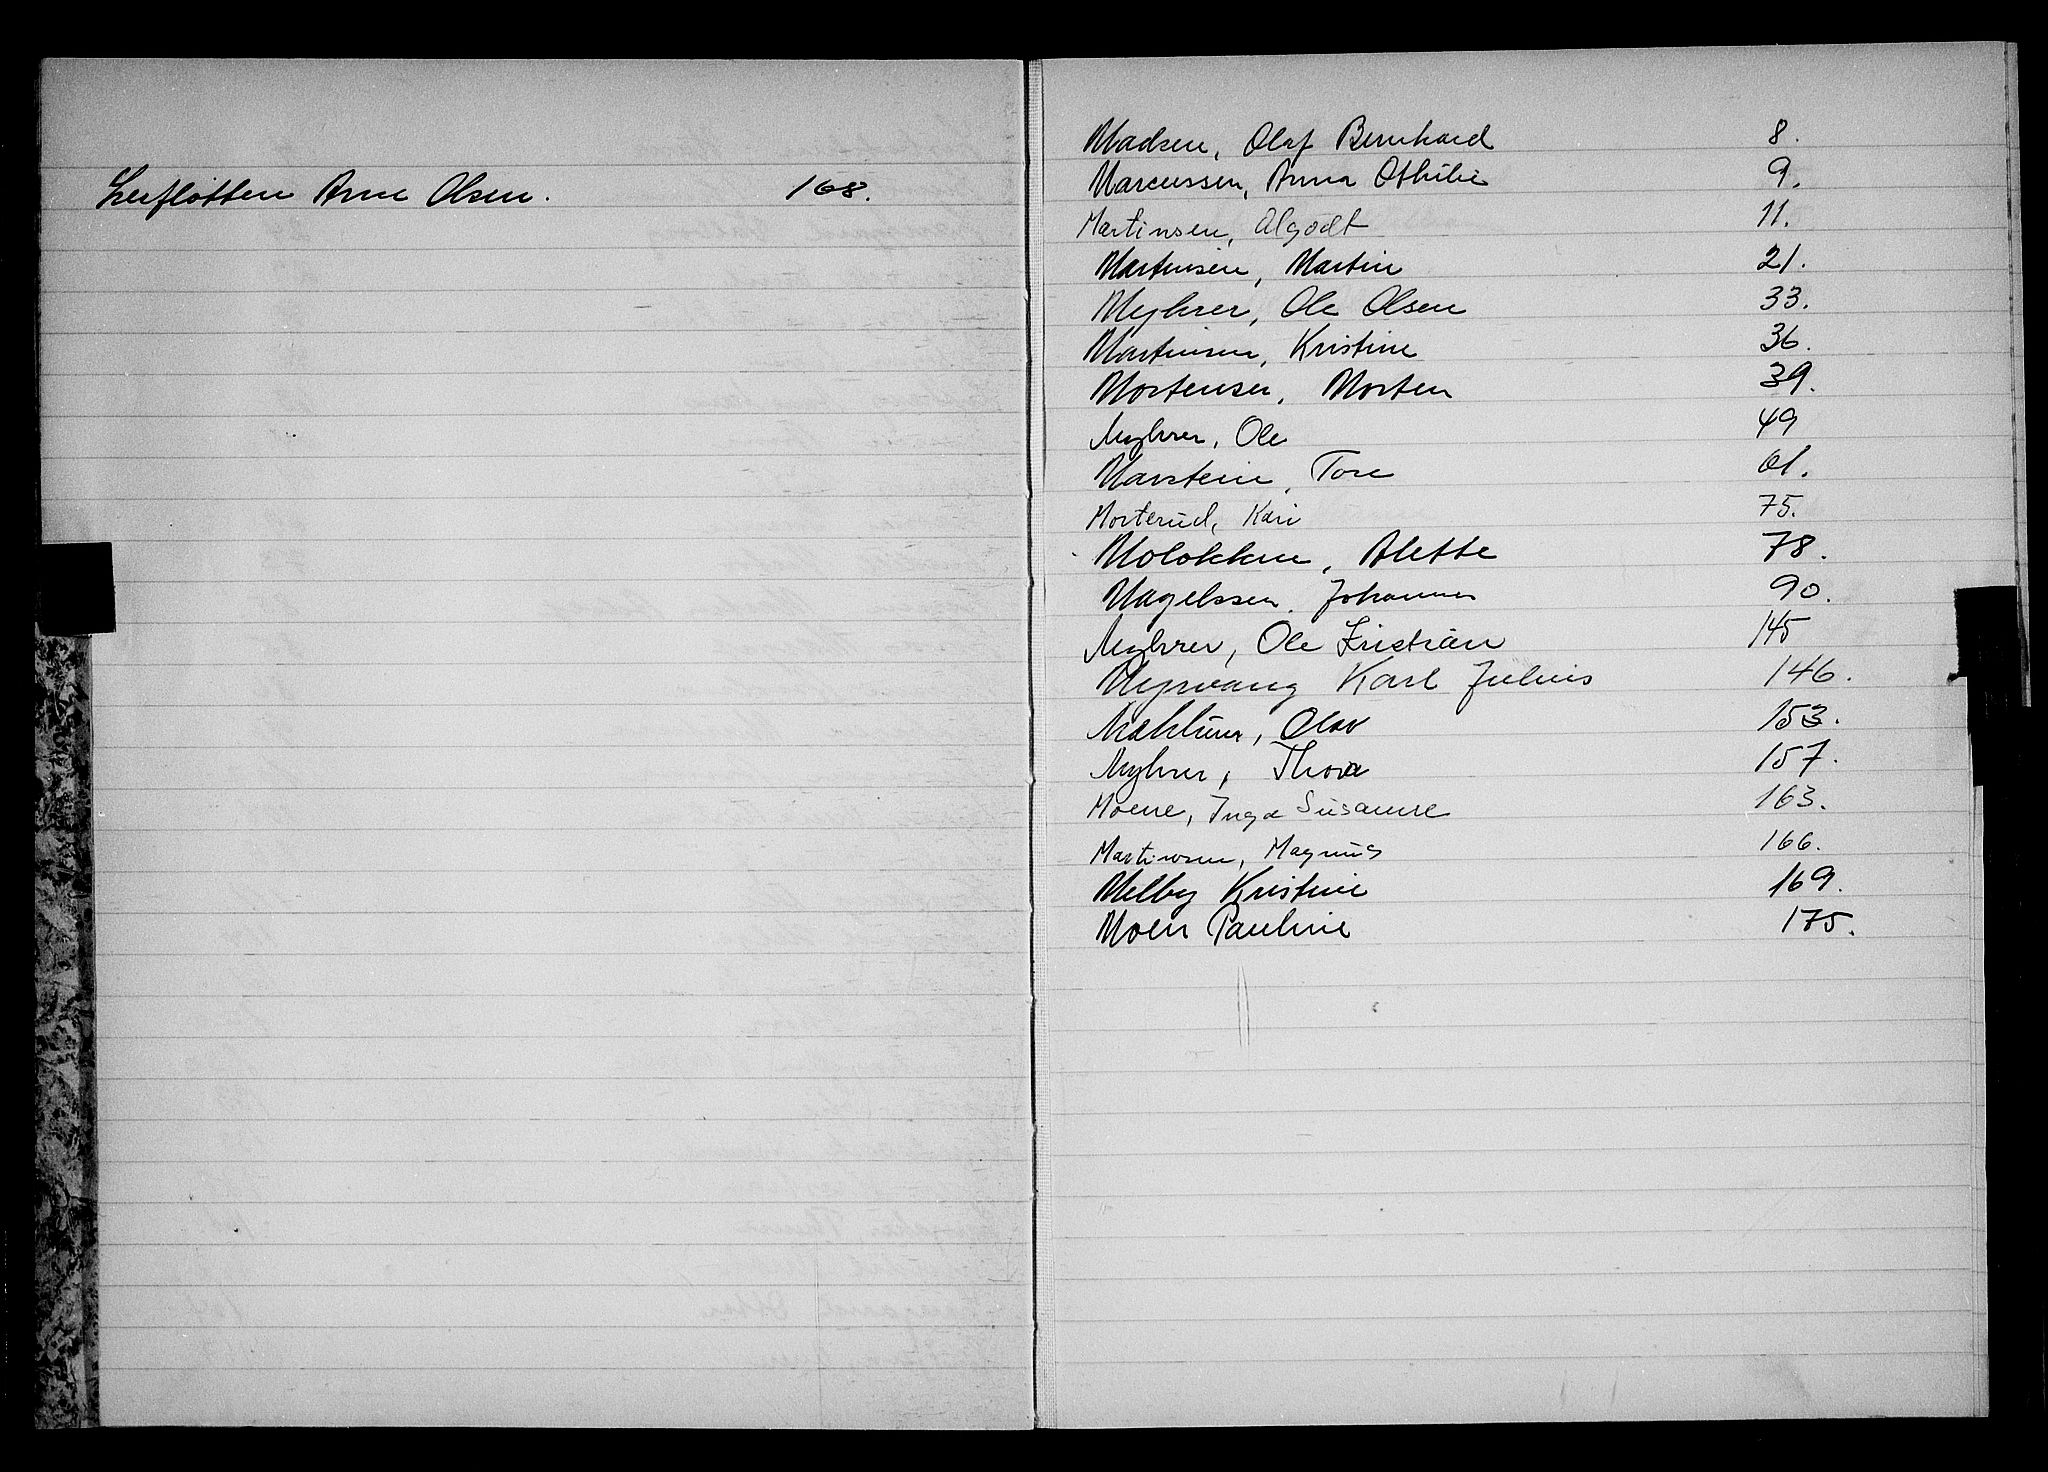 Lerfløtten Arne Olsen. 168.
Madsen, Olaf Bernhard 8.
Marcussen, Anna Othilie 9.
Martinsen, Algodt 11.
Martinsen, Martin 21.
Myhrer, Ole Olsen 33.
Martinsen, Kristine 36.
Mortensen, Morten 39.
Myhrer, Ole 49
Marstein, Tore 61.
Morterud, Kari 75.
Moløkken, Alette 78.
Magelssen, Johannes 90.
Myhrer, Ole Kristian 145
Myrvang Karl Julius 146.
Mæhlum, Olav 153.
Myhrer, Thora 157.
Moene, Inga Susanne 163.
Martinsen, Magnus 166.
Melby Kristine 169.
Moen Pauline 175.